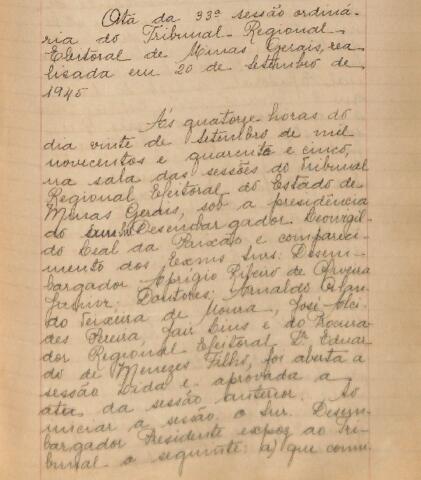 Ata da 33ª sessão ordiná-
ria do Tribunal Regional
Eleitoral de Minas Gerais, rea-
lisada em 20 de setembro de
1945
Ás quatorze horas do
dia vinte de setembro de mil
novecentos e quarenta e cinco,
na sala das sessões do Tribunal
Regional Eleitoral do Estado de
Minas Gerais, sob a presidência
do Desembargador Leovigil-
do Leal da Paixão, e compareci-
mento dos Exmos Snrs: Desem-
bargador Aprigio Ribeiro de Oliveira
Junior. Doutores: Arnaldo
do Teixeira de Moura, José Alci-
des Pereira, Jair Lins e do Procura-
dor Regional Eleitoral Dr Eduar-
do de Menezes Filho, foi aberta a
sessão. Lida e aprovada a
ata da sessão anterior. Ao
iniciar a sessão o Snr. Desem-
bargador Presidente expoz ao Tri-
bunal o seguinte: a) que comu-